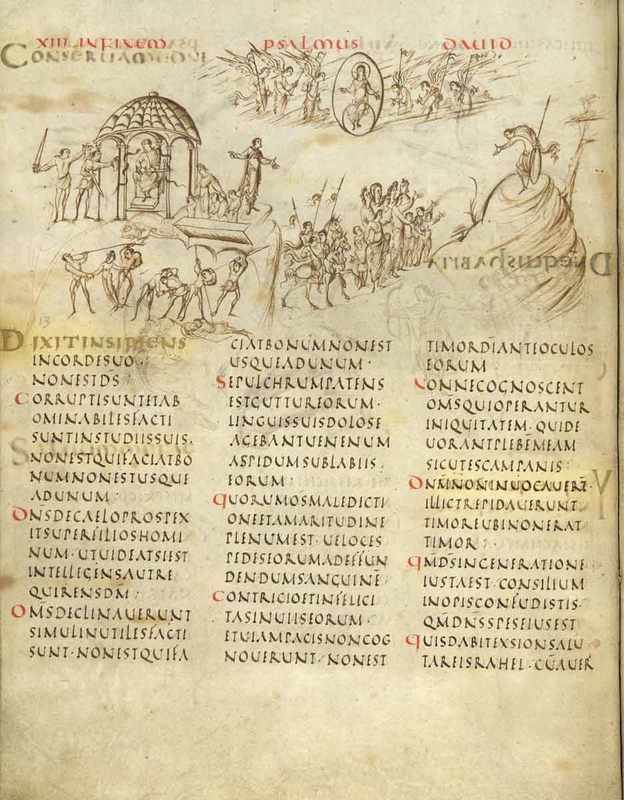 XIII INFINEM PSALMUS DAVID
DIXITINSIPIENS
INCORDESUO·
NONESTDS·
CORRUPTISUNTETAB
OMINABILESFACTI
SUNTINSTUDIISSUIS·
NONESTQUIFACIATBO
NUMNONESTUSQUE
ADUNUM·
DNSDECAELOPROSPEX
ITSUPERFILIOSHOMI
NUM·UTUIDEATSIEST
INTELLEGENSAUTRE
QUIRENSDM·
OMSDECLINAUERUNT
SIMULINUTILESFACTI
SUNT·NONESTQUIFA
CIATBONUMNONEST
USQUEADUNUM·
SEPULCHRUMPATENS
ESTGUTTUREORUM·
LINGUISSUISDOLOSE
AGEBANTUENENUM
ASPIDUMSUBLABIIS·
EORUM·
QUORUMOSMALEDICTI
ONEETAMARITUDINE
PLENUMEST·UELOCES
PEDESEORUMADEFFUN
DENDUMSANGUINE·
CONTRICIOETINFELICI
TASINUIISEORUM·
ETUIAMPACISNONCOG
NOUERUNT·NONEST
TIMORDIANTEOCULOS
EORUM
NONNECOGNOSCENT
OMSQUIOPERANTUR
INIQUITATEM·QUIDE
UORANTPLEBEMEAM
SICUTESCAMPANIS·
DNMNONINUOCAUERT·
ILLICTREPIDAUERUNT·
TIMOREUBINONERAT
TIMOR·
QMDSINGENERATIONE
IUSTAEST·CONSILIUM
INOPISCONFUDISTIS·
QMDNSSPESEIUSEST
QUISDABITEXSIONSALU
TAREISRAHEL·CUAUER